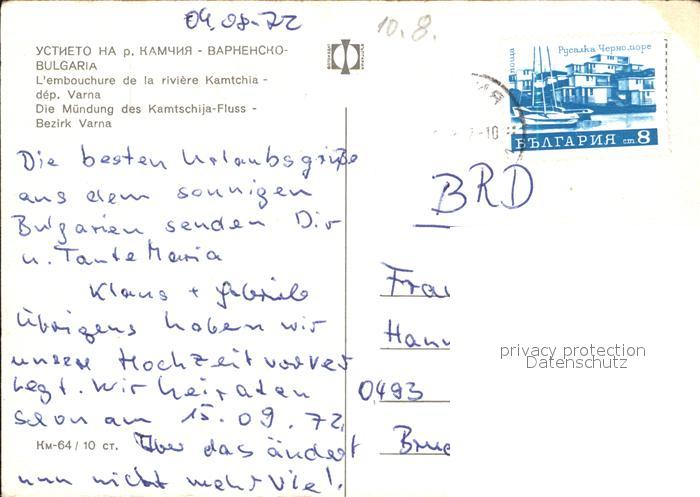 04.08.72
10.8.
УСТИЕТО НА р. КАМЧИЯ - ВАРНЕНСКО-
BULGARIA
L'embouchure de la rivière Kamtchia -
dép. Varna
Die Mündung des Kamtschija-Fluss -
Bezirk Varna
поща
Русалка Черно море
БЪЛГАРИЯ ст 8
Die besten Urlaubsgrüße
aus dem sonnigen
Bulgarien senden Dir
u. Tante Maria
Klaus + Gabriele
Übrigens haben wir
unsere Hochzeit vorver
legt. Wir heiraten
schon am 15.09.72.
Aber das ändert
nun nicht mehr viel!
Км-64/10 ст.
BRD
Frau
Hann
0493
Brue
privacy protection
Datenschutz